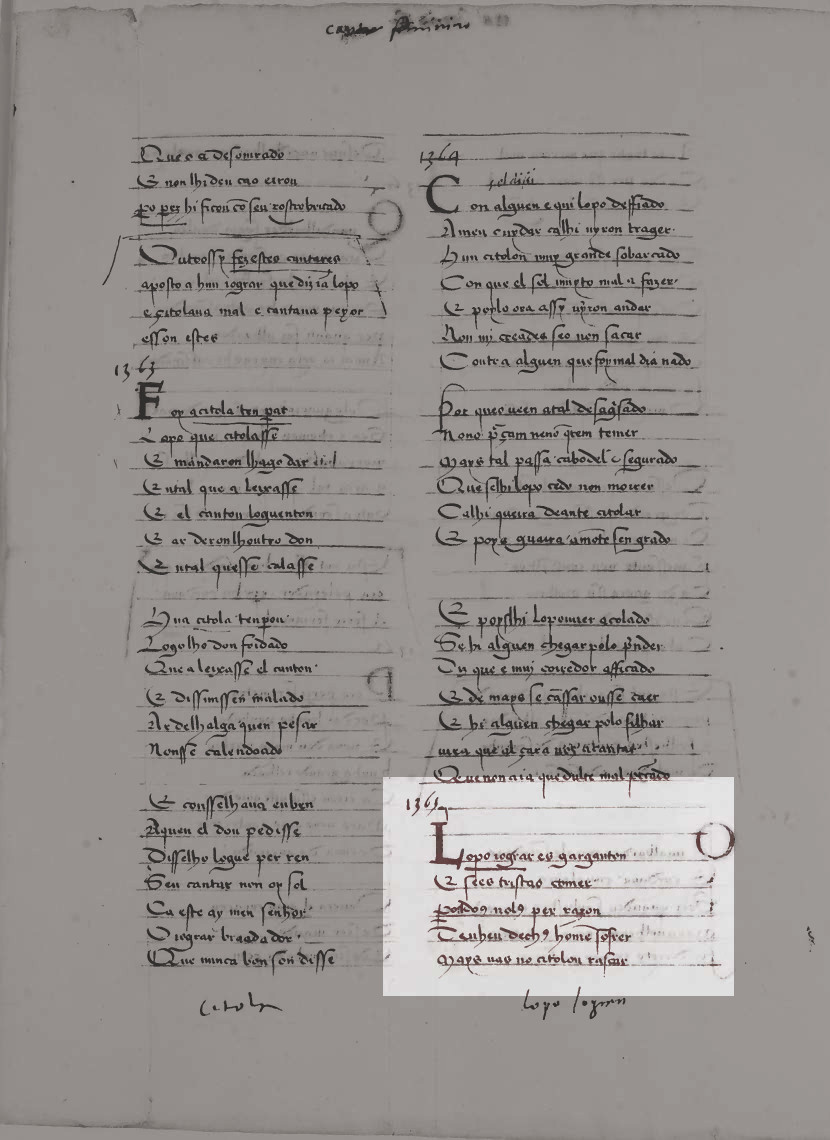 Que o a desonrrado
E non lhi den cao errou
hi ficou cō seu rostro britado
Outrossy fez estes cantares
aposto a hun iograr que dizia lopo
e çitolaua mal e cantaua peyor
esson estes
1363
Foy a citola ten par
Lopo que citolasse
E mandaron lhago dar
E ntal que a leyxasse
E el cantou loguenton
E ar deronlhoutro don
E ntal quesse calasse
Hua citola tenpou
Logolho don foi dado
Que a leyxasse el cantou
E dissimssen malado
Ar delhalga quen pesar
Nonsse calendoado
E consselhaua eu ben
Aquen el don pedisse
Disselho logue per ren
Seu cantar non oysol
Ca este ay meu senhor
O iograr bragador
Que nunca bon son disse
citola
1364
Con alguen e qui lopo desfiado
A meu cuydar calhi uyron trager
Hun citolon muy grande sobarcado
Con que el sol muyto mal a fazer
E poylo ora assy uyron andar
Non mi creades seo non sacar
Contra alguen que foy mal dia nado
Por queo ueen atal
Nono neno q̄rem temer
Mays tal passa cabodel segurado
Que selhi lopo cedo non morrer
Calhi queira deante citolar
E poys guarra amorte sen grado
E poyslhi Lopouuer acolado
Se hi alguen chegar polo p̄nder
Diz que e muy coredor afficado
E de mays se cāssar ousse caer
E hi alguen chegar polo filhar
Que non aia que dulte mal
1365
Lopo iograr es garganton
E sees tristao comer
per razon
Tenheu home sofrer
Mays uas no citolon rascar
lopo jograr